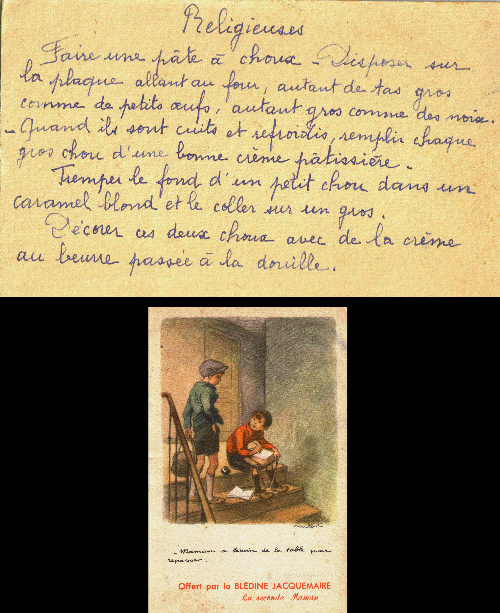 Religieuses
Faire une pâte à choux - Disposer sur
la plaque allant au four, autant de tas gros
comme de petits œufs, autant gros comme des noix.
- Quand ils sont cuits et refroidis, remplir chaque
gros chou d'une bonne crème pâtissière.
Tremper le fond d'un petit chou dans un
caramel blond et le coller sur un gros.
Décorer ces deux choux avec de la crème
au beurre passée à la douille.
- Maman a besoin de la table pour
repasser.
Offert par la BLÉDINE JACQUEMAIRE
La seconde Maman